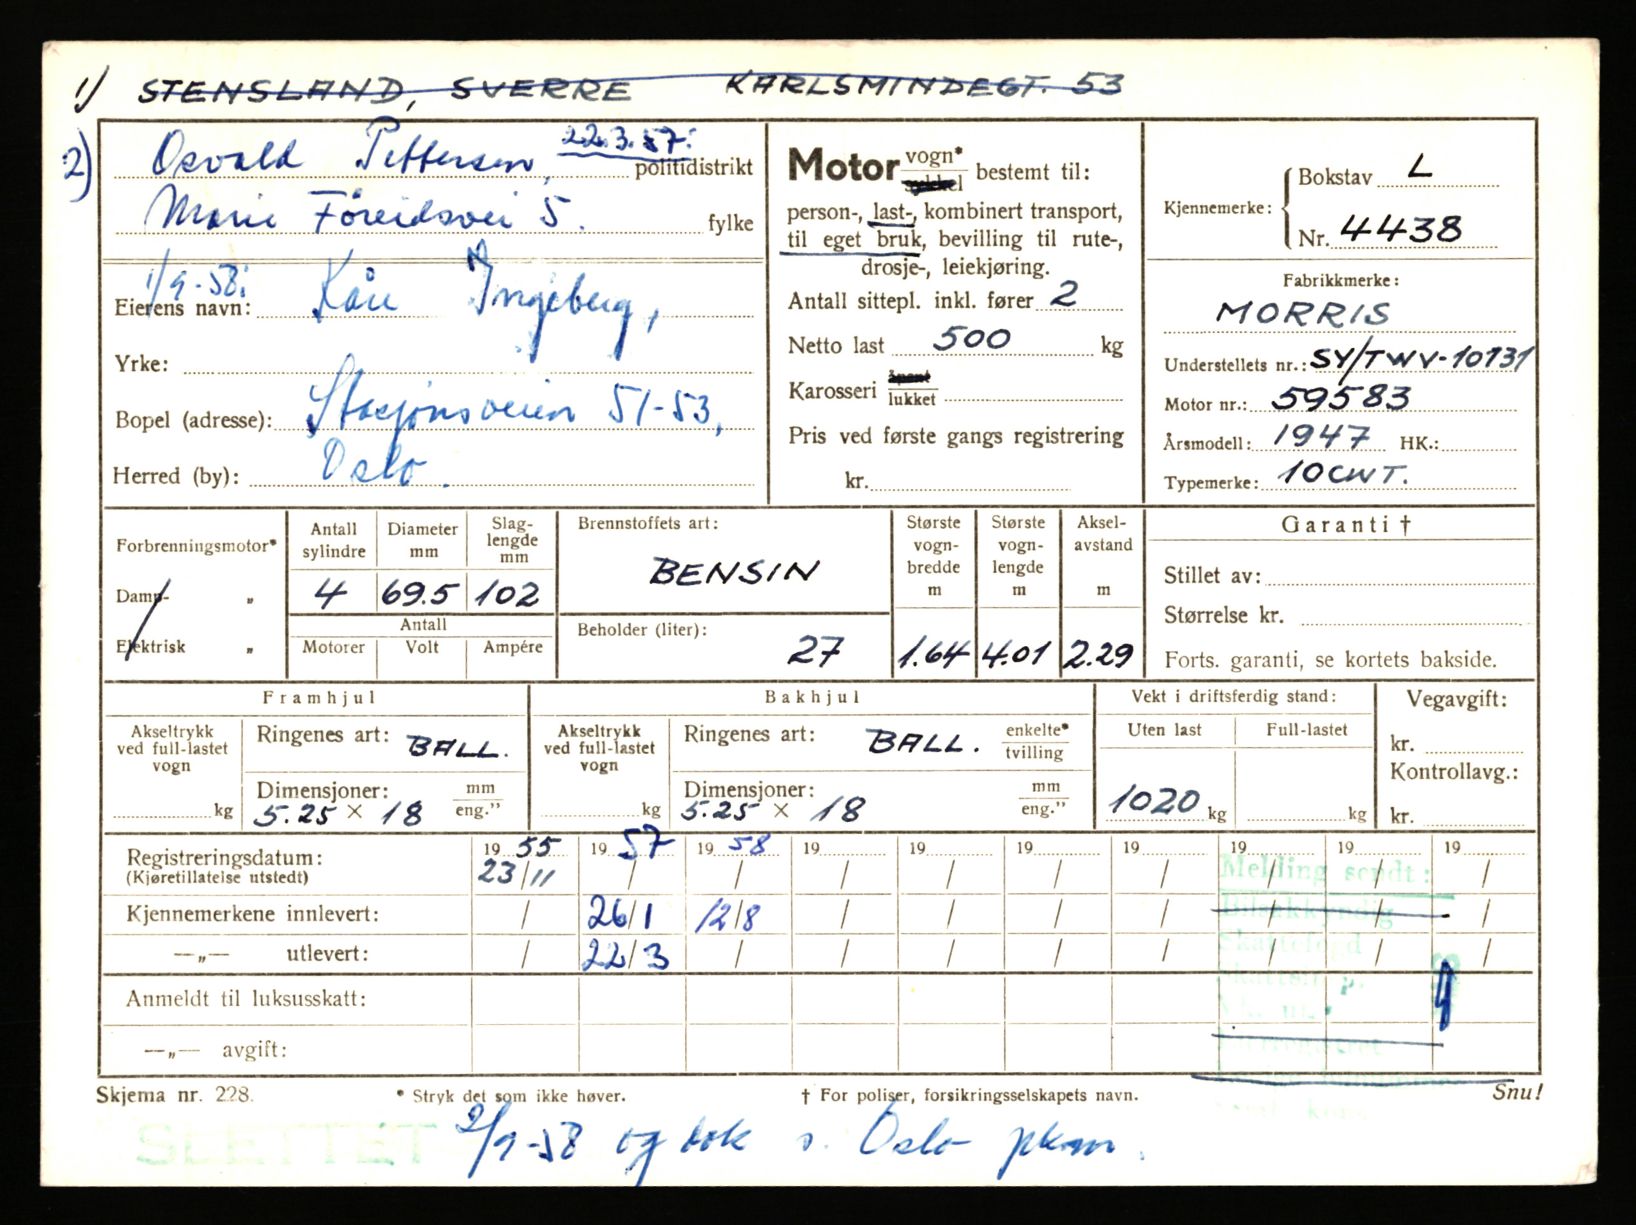 1) STENSLAND, SVERRE KARLSMINDEGT. 53
2) Osvald Pettersen, 22.3.57. politidistrikt
Marie Föreidsvei 5. fylke
1/9-58:
Eierens navn: Kåre Ingeberg,
Yrke:
Bopel (adresse): Stasjonsveien 51-53,
Herred (by): Oslo.
Motor vogn* sykkel bestemt til:
person-, last-, kombinert transport,
til eget bruk, bevilling til rute-,
drosje-, leiekjøring.
Antall sittepl. inkl. fører 2
Netto last 500 kg
Karosseri åpent lukket
Pris ved første gangs registrering
kr.
Kjennemerke: Bokstav L
Nr. 4438
Fabrikkmerke:
MORRIS
Understellets nr.: SY/TWV-10131
Motor nr.: 59583
Årsmodell: 1947 HK.:
Typemerke: 10CWT.
Forbrenningsmotor*
Damp- „
Elektrisk „
Antall sylindre
Diameter mm
Slaglengde mm
4 69.5 102
Antall
Motorer Volt Ampére
Brennstoffets art:
BENSIN
Beholder (liter):
27
Største vogn-bredde m
Største vogn-lengde m
Aksel-avstand m
1.64 4.01 2.29
Garanti †
Stillet av:
Størrelse kr.
Forts. garanti, se kortets bakside.
Framhjul
Akseltrykk ved full-lastet vogn
kg
Ringenes art: BALL.
Dimensjoner: mm
5.25 × 18 eng."
Bakhjul
Akseltrykk ved full-lastet vogn
kg
Ringenes art: BALL. enkelte* tvilling
Dimensjoner: mm
5.25 × 18 eng."
Vekt i driftsferdig stand:
Uten last Full-lastet
1020 kg kg
Vegavgift:
kr.
Kontrollavg.:
kr.
19 55 19 57 19 58 19 19 19 19 19 19 19
Registreringsdatum:
(Kjøretillatelse utstedt) 23/11 / / / / / / / / /
Kjennemerkene innlevert: / 26/1 12/8 / / / / / / /
—„— utlevert: / 22/3 / / / / / / / /
Melding sendt:
Bilsakkyndig
Skattefogd
Anmeldt til luksusskatt:
—„— avgift:
Skjema nr. 228.
* Stryk det som ikke høver.
† For poliser, forsikringsselskapets navn.
Snu!
SLETTET
2/9-58 og bok s. Oslo pkm.